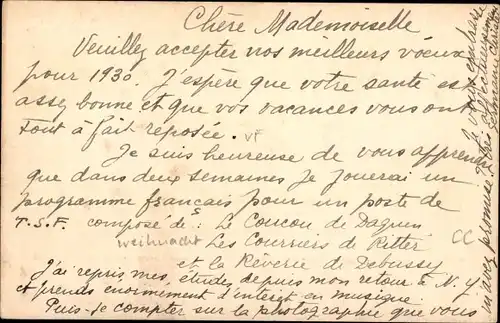 Chère Mademoiselle
Veuillez accepter nos meilleurs vœux
pour 1930. J'espère que votre santé est
assez bonne et que vos vacances vous ont
tout à fait reposée. VF
Je suis heureuse de vous apprendre
que dans deux semaines je jouerai un
programme français pour un poste de
T.S.F. composé de: Le Coucou de Daquin
weihnacht Les Courriers de Ritter CC
et la Rêverie de Debussy
J'ai repris mes études depuis mon retour à N.Y
et prends énormément d'intérêt en musique.
Puis-je compter sur la photographie que vous
m'avez promise. Je vous embrasse
très affectueusement